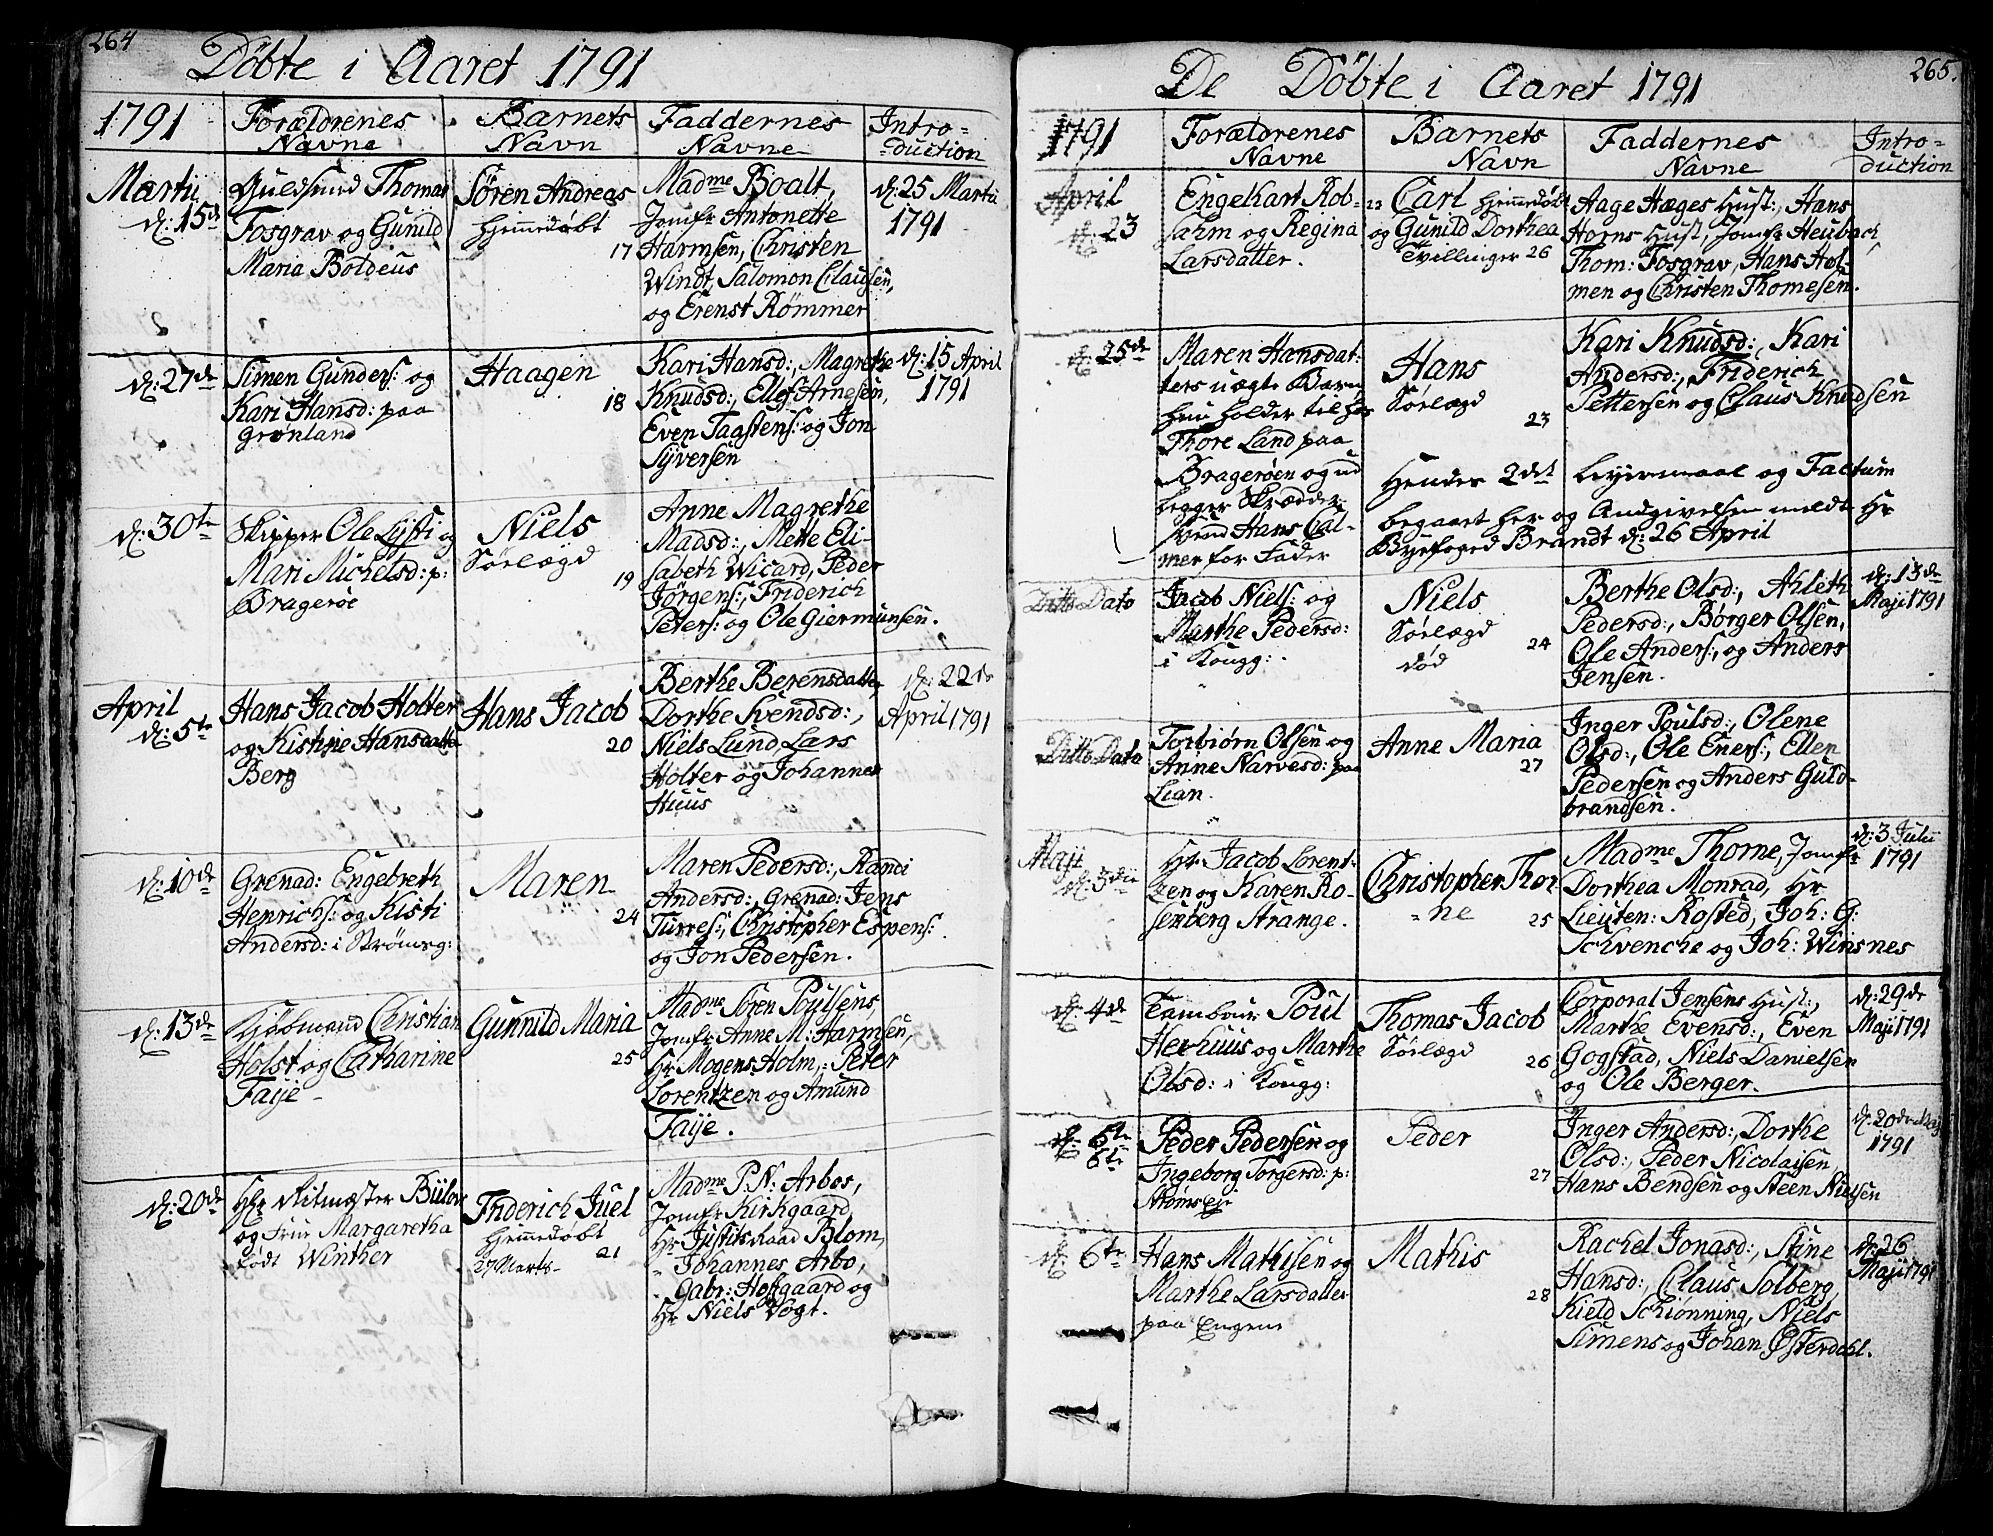 264
Döbte i Aaret 1791
1791
Forældrenes
Navne
Barnets
Navn
Faddernes
Navne
Intro-
duction
Martii
d: 15de
Guldsmed Thomas
Fosgrav og Gunild
Maria Boldeus
Sören Andreas
Hjemmedöbt
17
Madme Boalt,
Jomfr Antonette
Harmsen, Christen
Windt, Salomon Clausen,
og Erenst Römmer
d: 25 Martii
1791
d: 27de
Simen Gunders: og
Kari Hansd: paa
Grönland
Haagen
18
Kari Hansd:, Magrethe
Knudsd:, Ellef Arnesen,
Even Taastens: og Jon
Syversen
d: 15 April
1791
d: 30te
Skipper Ole Lysti og
Mari Michelsd: p:
Brageröe
Niels
Sörlægd
19
Anne Magrethe
Madsd:, Mette Eli-
sabeth Wicard, Peder
Jörgens:, Friderich
Peters: og Ole Giermunsen.
April
d: 5te
Hans Jacob Holter
og Kistine Hansdatte
Berg
Hans Jacob
20
Berthe Berensdatter
Dorthe Svendsd:,
Niels Lund, Lars
Holter og Johannes
Huus
d: 22de
April 1791
d: 10de
Grenad: Engebreth
Henrichs: og Kisti
Andersd: i Strömsg:
Maren
24
Maren Pedersd:, Randi
Andersd: Grenad: Jens
Turres:, Christopher Espens:
og Jon Pedersen.
d: 13de
Kjöbmand Christian
Holst og Catharine
Faije
Gunnild Maria
25
Madme Sören Poulsens,
Jomfr Anne M: Harmsen,
Hr Mogens Holm,: Peter
Lorentzen og Amund
Faije.
d: 20de
Hr Ritmester Bülow
og Frue Margaretha
födt Winther
Friderich Juel
Hjemmedöbt
27 Marts
21
Madme P. N: Arbos,
Jomfr Kirkgaard,
Hr Justits Raad Blom,
" Johannes Arbo,
" Gabr: Hofgaard og
Hr Niels Vogt.
265.
De Döbte i Aaret 1791
1791
Forældrenes
Navne
Barnets
Navn
Faddernes
Navne
Intro-
duction
April
d: 23
Engelhart Rob-
sahm og Regina
Larsdatter.
22 Carl Hjemmedöbt
og Gunild Dorthea
Tvillinger 26
Aage Hæges Hust:, Hans
Horns Hust, Jomfr Heubach,
Thom: Fosgrav, Hans Hol-
men og Christen Thomesen.
d: 25de
Maren Hansdat-
ters uægte Barn
hun holder til hos
Thore Land paa
Bragerøen og ud
legger Skrædder
svend Hans Cal-
mer for Fader
Hans
Sörlægd
23
Kari Knudsd:, Kari
Andersd:, Friderich
Pettersen og Claus Knudsen
Hendes 2det Leyermaal og Factum
begaaet her og Angivelsen meldt Hr
Byefoged Brandt d: 26 April
Ditto Dato
Jacob Niels: og
Marthe Pedersd:
i Kongg:
Niels
Sörlægd
död
24
Berthe Olsd:, Ahleth
Pedersd:, Börger Olsen,
Ole Anders:, og Anders
Jensen.
d: 13de
Maji 1791
Ditto Dato
Torbiörn Olsen og
Anne Narvesd: paa
Lian.
Anne Maria
27
Inger Poulsd:, Olene
Olsd:, Ole Eners:, Ellen
Pedersen og Anders Guld-
brandsen.
Maji
d: 3die
Hr Jacob Lorent-
zen og Karen Ro-
senberg Strange.
Christopher Thor-
=ne
25
Madme Thorne, Jomfr
Dorthea Monrad, Hr
Lieuten: Rosted, Joh: G:
Schvencke og Joh: Winsnes
d: 3 Julii
1791
d: 4de
Tambour Poul
Herhuus og Marthe
Olsd: i Kongg:
Thomas Jacob
Sörlægd
26
Corporal Jensens Hust:,
Marthe Evensd:, Even
Gogstad, Niels Danielsen
og Ole Berger.
d: 29de
Maji 1791
d: 6te
6te
Peder Pedersen og
Ingeborg Torgersd: p:
Strömseje
Peder
27
Inger Andersd:, Dorthe
Olsd:, Peder Nicolaisen
Hans Bendsen og Steen Nielsen
d: 20de Maji
1791
d: 6te
Hans Mathisen og
Marthe Larsdatter
paa Engene
Mathis
28
Rachel Jonasd:, Stine
Hansd:, Claus Solberg,
Kield Schiönning, Niels
Simens og Johan Österdahl.
d: 26
Maji 1791